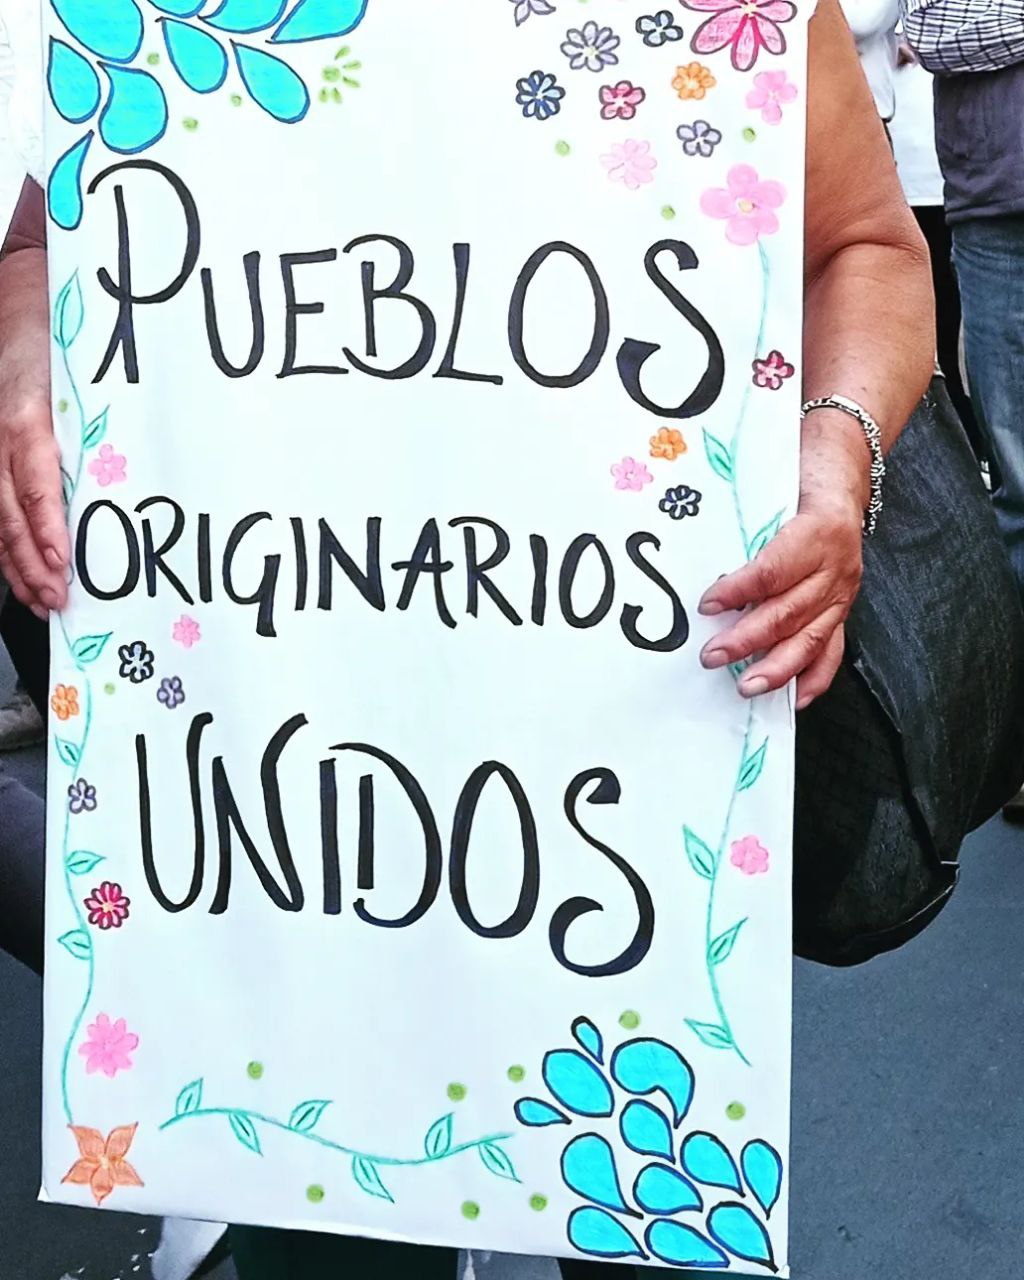 PUEBLOS
ORIGINARIOS
UNIDOS